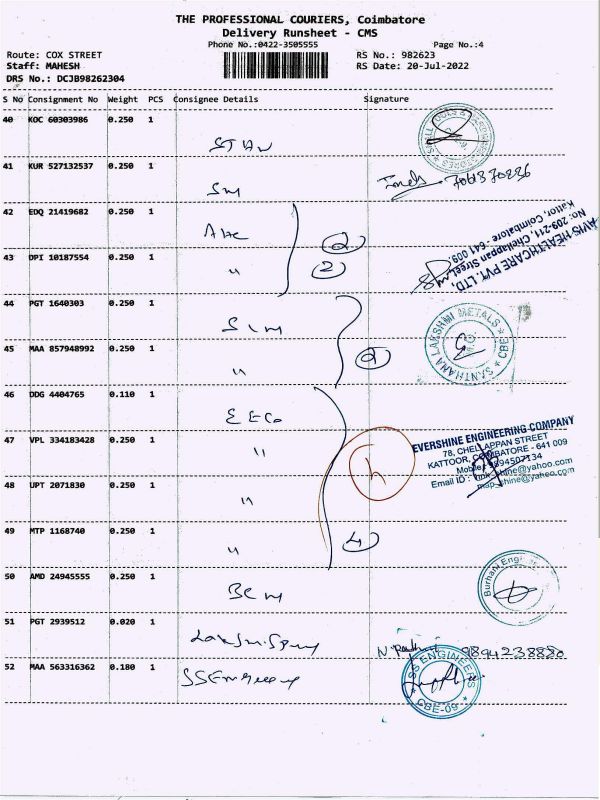 THE PROFESSIONAL COURIERS, Coimbatore
Delivery Runsheet - CMS
Phone No.:0422-3505555
Page No.:4
Route: COX STREET
RS No.: 982623
Staff: MAHESH
RS Date: 20-Jul-2022
DRS No.: DCJB98262304
S No Consignment No Weight PCS Consignee Details Signature
40 KOC 60303986 0.250 1
41 KUR 527132537 0.250 1
SM
42 EDQ 21419682 0.250 1
2
43 DPI 10187554 0.250 1
" 2
AVIS HEALTHCARE PVT. LTD.
No: 209-211, Chellappan Street,
Kattor, Coimbatore - 641 009.
44 PGT 1640303 0.250 1
SLM
SANTHANA LAKSHMI METALS * CBE *
45 MAA 857948992 0.250 1
" 2
46 DDG 4404765 0.110 1
E E Co
47 VPL 334183428 0.250 1
"
EVERSHINE ENGINEERING COMPANY
78, CHELLAPPAN STREET
KATTOOR, COIMBATORE - 641 009
Mobile: 9894507134
48 UPT 2071830 0.250 1
"
49 MTP 1168740 0.250 1
" 4
50 AMD 24945555 0.250 1
Burhani
51 PGT 2939512 0.020 1
9894238880
52 MAA 563316362 0.180 1
SS Engineering
SS ENGINEERS
CBE-09